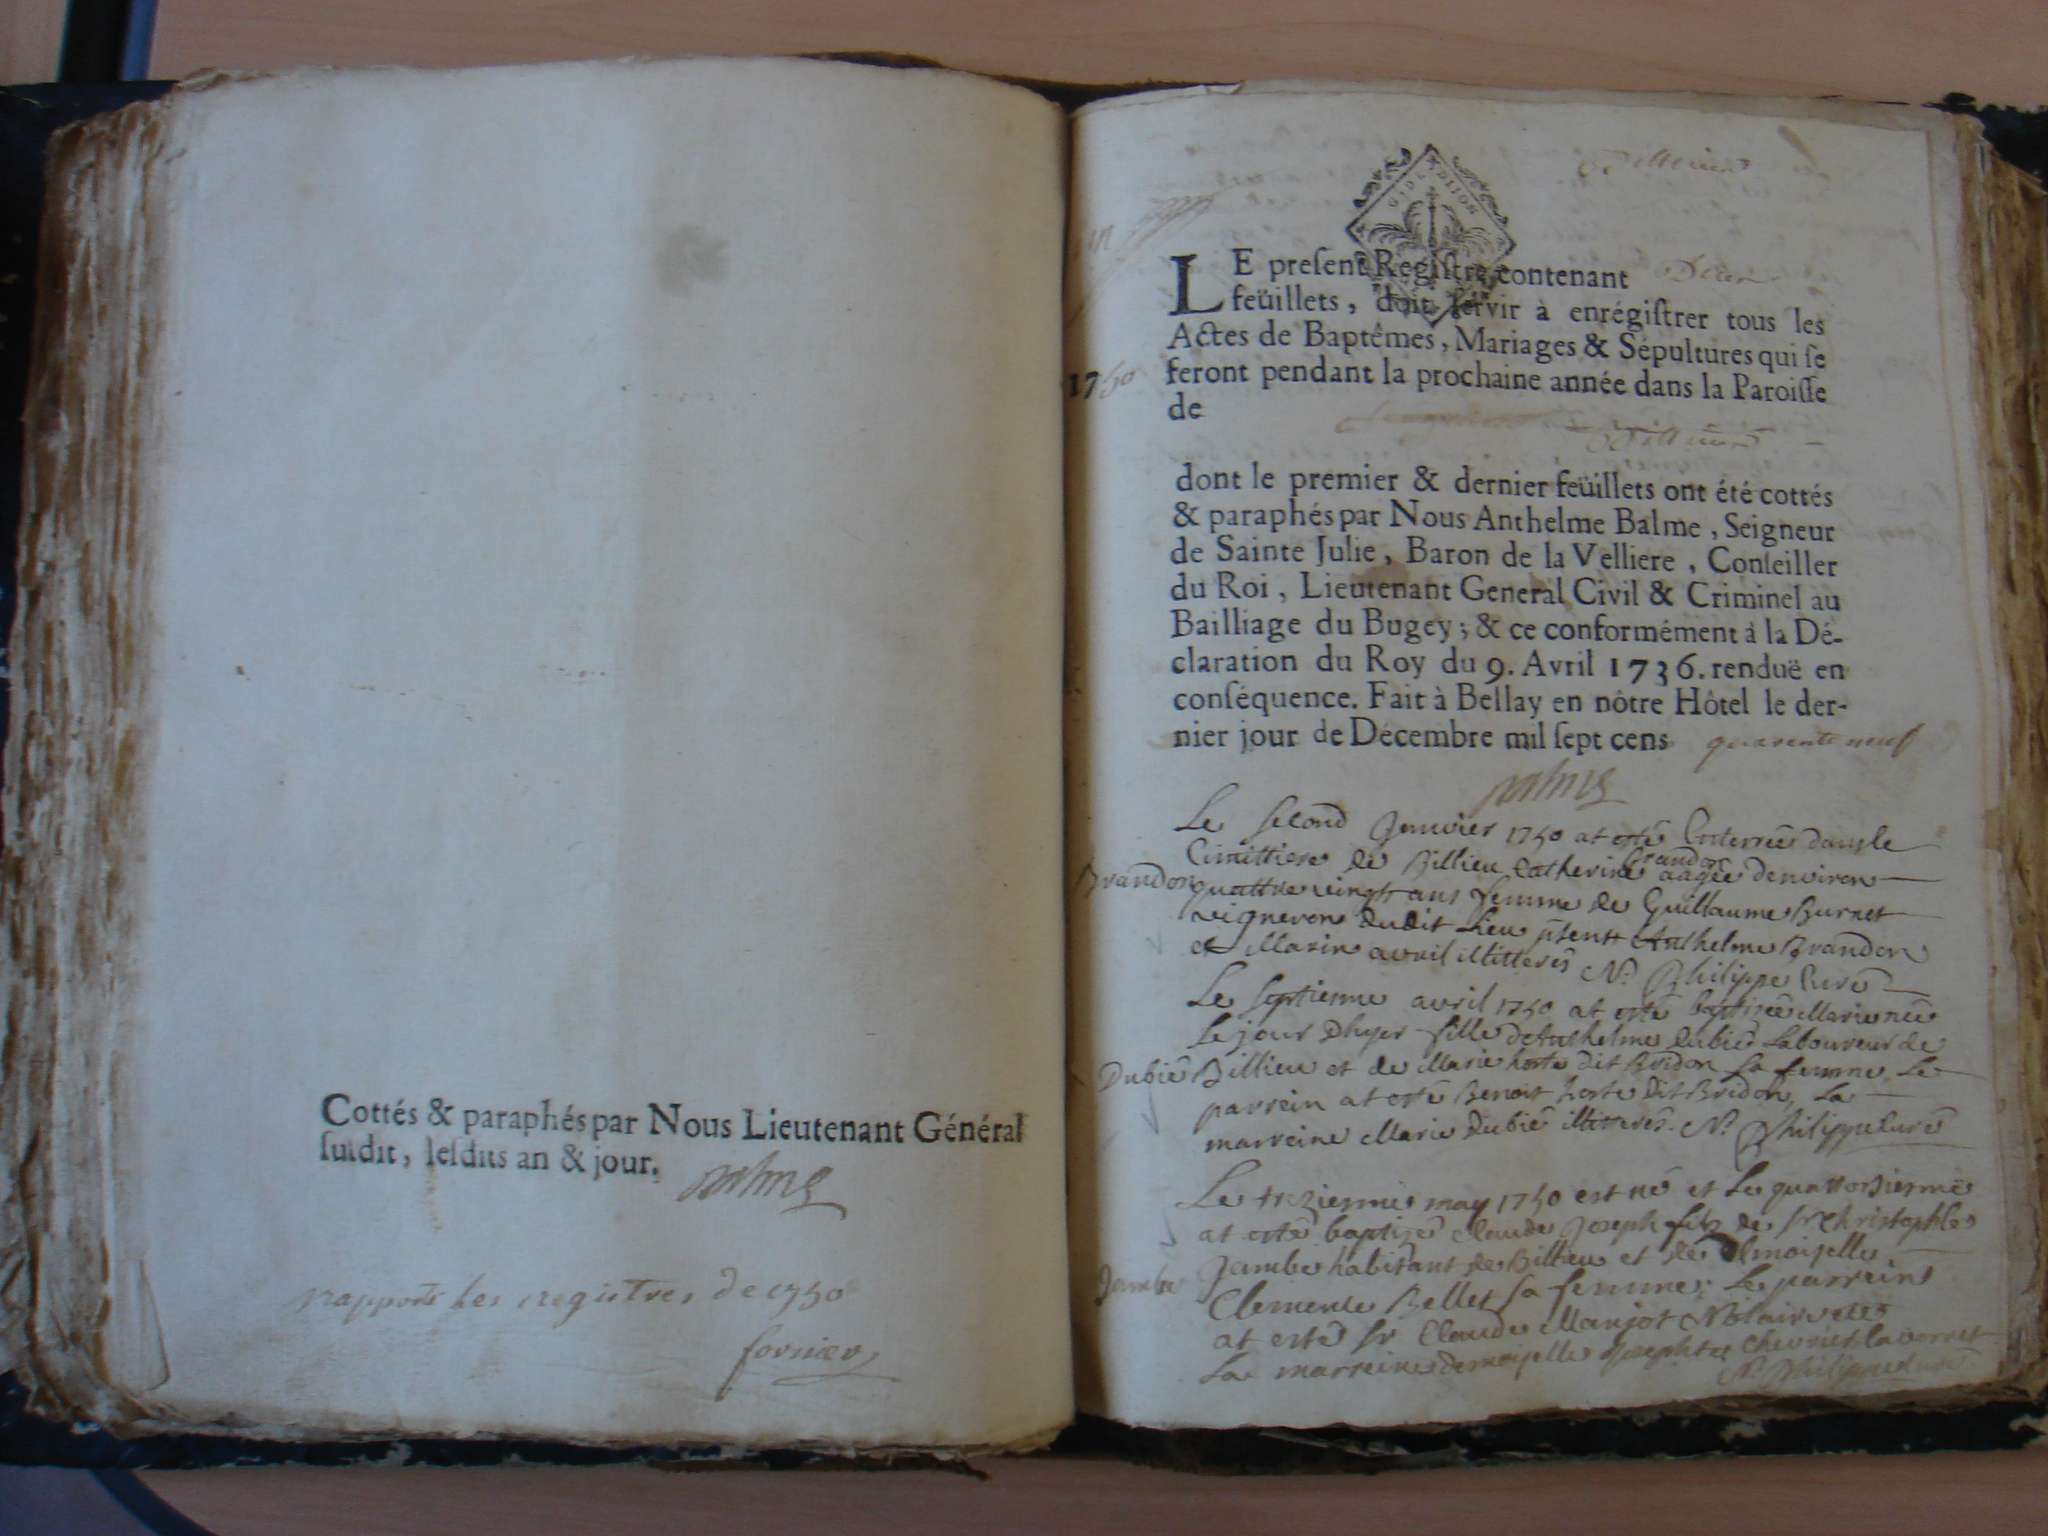 Cottés & paraphés par Nous Lieutenant Général
ſuſdit, leſdits an & jour.
Balme
rapporté les registres de 1750
fornier
G. D. DIJON
Billieu
LE preſent Regiſtre contenant Deux
feüillets, doit ſervir à enrégiſtrer tous les
Actes de Baptêmes, Mariages & Sépultures qui ſe
1750
feront pendant la prochaine année dans la Paroiſſe
de
Billieu
dont le premier & dernier feüillets ont été cottés
& paraphés par Nous Anthelme Balme, Seigneur
de Sainte Julie, Baron de la Velliere, Conſeiller
du Roi, Lieutenant General Civil & Criminel au
Bailliage du Bugey; & ce conformément à la Dé-
claration du Roy du 9. Avril 1736. renduë en
conſéquence. Fait à Bellay en nôtre Hôtel le der-
nier jour de Décembre mil ſept cens quarente neuf
Balme
Le second Janvier 1750 at esté Enterrée dans le
Cimittiere de Billieu Catherine Brandon aagée denviron
Brandon
quattre vingt ans femme de Guillaume Burnet
vigneron dudit Lieu pñents Anthelme Brandon
et Marin avril illitterés N. Philippe Curé
Le septieme avril 1750 at esté baptizée Marie née
Le jour Dhyer fille de Anthelme Dubié Laboureur de
Dubié
Billieu et de Marie horte dit Bridon sa femme Le
parrein at esté Benoit horte dit Bridon, La
marreine Marie Dubié illitterés. N. Philippe Curé
Le treziemme may 1750 est né et Le quattorziemme
at esté baptizé Claude Joseph fils de sr Christophle
Jambe
Jambe habitant de Billieu et de dmoiselle
Clemence Bellet sa femme; Le parrein
at esté sr Claude Marjot Notaire et
La marreine demoiselle Josephte Chevrier
N. Philippe Curé